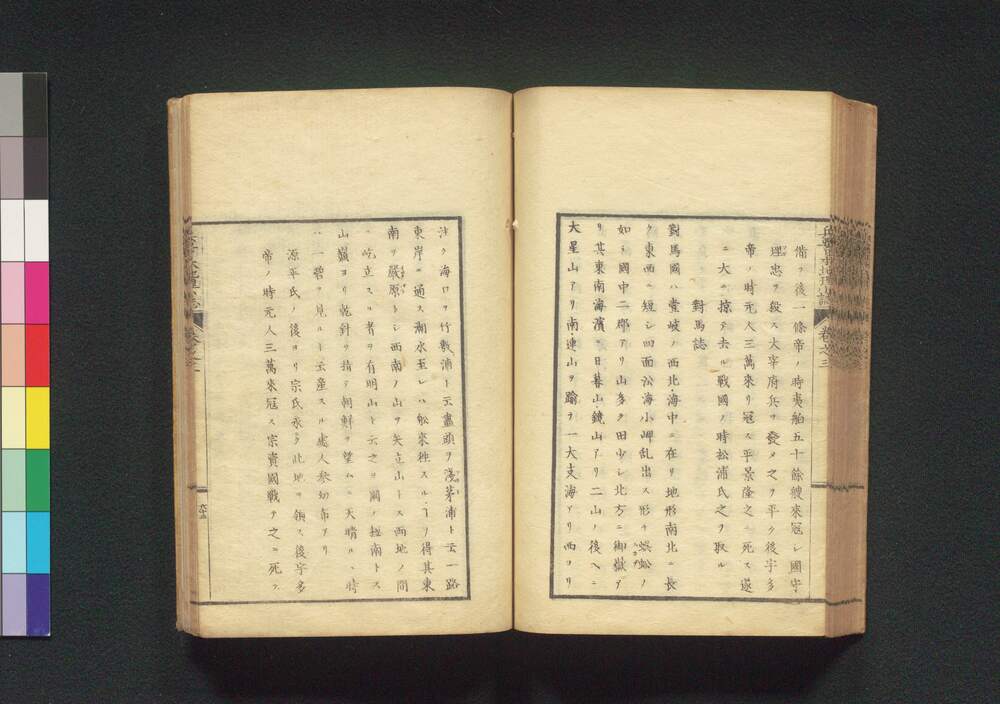 備ヲ後一條帝ノ時夷舶五十餘艘來冦シ國守
理忠ヲ殺ス大宰府兵ヲ發メ之ヲ平ク後宇多
帝ノ時元人三萬來リ冦ス平景隆之ニ死ス遂
ニ大ニ掠テ去ル戰國ノ時松浦氏之ヲ取ル
對馬誌
對馬國ハ壹岐ノ西北海中ニ在リ地形南北ニ長
ク東西ニ短シ四面沿海小岬乱出ス形チ蜈蚣ノ
如シ國中二郡アリ山多ク田少シ北方ニ御嶽ア
リ其東南海濱ニ日暮山鏡山アリ二山ノ後ヘニ
大星山アリ南連山ヲ踰テ一大支海アリ西ヨリ
注ク海口ヲ竹敷浦ト云盡頭ヲ淺茅浦ト云一路
東岸ニ通ス潮水至レハ舩來徃スルヿヲ得其東
南ヲ嚴原トシ西南ノ山ヲ矢立山トス两地ノ間
ニ屹立スル者ヲ有明山ト云之ヲ國ノ極南トス
山巓ヨリ乾針ヲ指テ朝鮮ヲ望ムニ天晴ルヽ時
ハ一碧ヲ見ルト云産スル處人参幼布アリ
源平氏ノ後ヨリ宗氏永ク此地ヲ領ス後宇多
帝ノ時元人三萬來冦ス宗資國戰テ之ニ死ス
卷之三